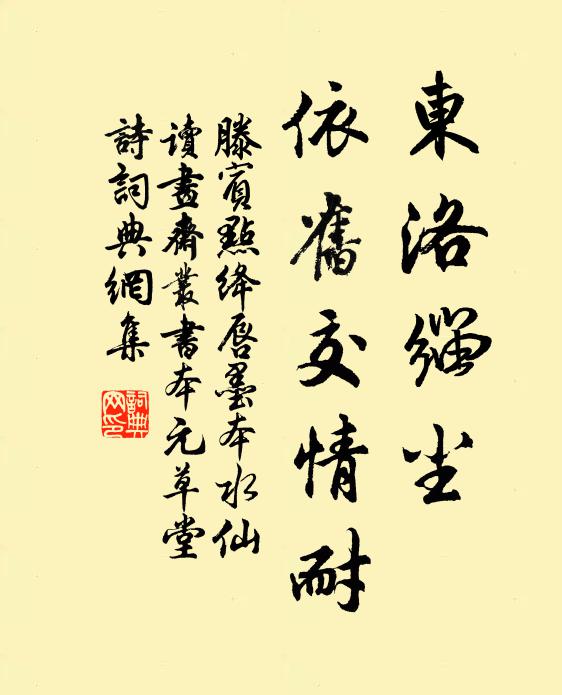 東洛緇尘
依舊交情耐
滕賓點絳唇墨本水仙
读畫齋叢書本元草堂
詩詞典網集
詞典
网印